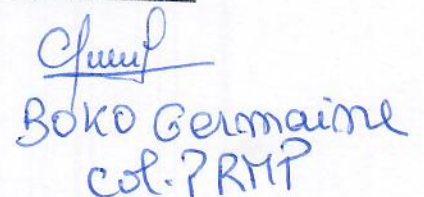 BOKO Germaine
Col. PRMP